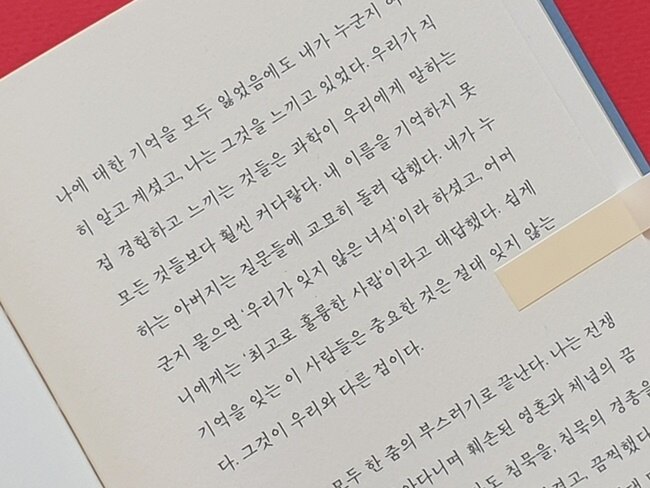 나에 대한 기억을 모두 잃었음에도 내가 누군지
히 알고 계셨고, 나는 그것을 느끼고 있었다. 우리가 직
접 경험하고 느끼는 것들은 과학이 우리에게 말하는
모든 것들보다 훨씬 커다랗다. 내 이름을 기억하지 못
하는 아버지는 질문들에 교묘히 돌려 답했다. 내가 누
군지 물으면 '우리가 잊지 않은 녀석'이라 하셨고, 어머
니에게는 '최고로 훌륭한 사람'이라고 대답했다. 쉽게
기억을 잊는 이 사람들은 중요한 것은 절대 잊지 않는
다. 그것이 우리와 다른 점이다.
모두 한 줌의 부스러기로 끝난다. 나는 전쟁
훼손된 영혼과 체념의 끔
침묵을, 침묵의 경종을
끔찍했다